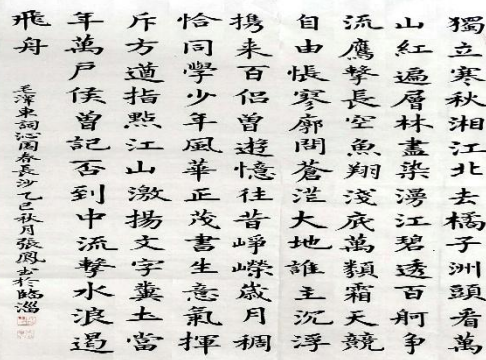 獨立寒秋湘江北去橘子洲頭看萬
山紅遍層林盡染湧江碧透百舸争
流鷹擊長空魚翔淺底萬類霜天競
自由悵寥廓問蒼茫大地誰主沉浮
携来百侣曽遊憶往昔崢嶸歲月稠
恰同學少年風華正茂書生意氣揮
斥方遒指點江山激揚文字糞土當
年萬戶侯曽記否到中流擊水浪遏
飛舟
毛澤東詞沁園春長沙乙巳秋月張鳳书於臨淄